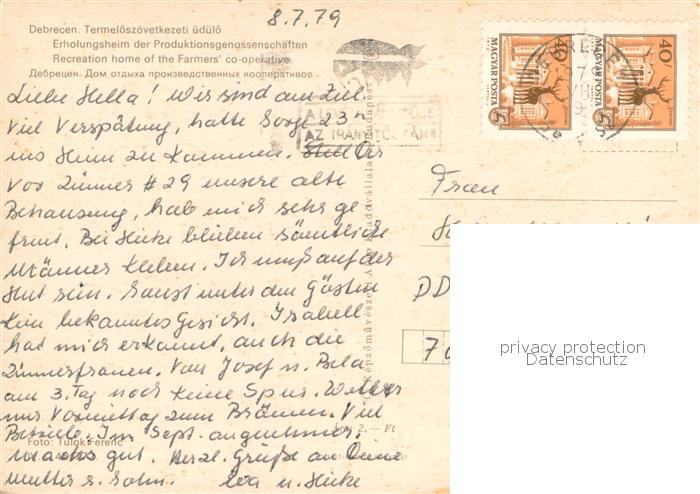 8.7.79
Debrecen. Termelőszövetkezeti üdülő
Erholungsheim der Produktionsgenossenschaften
Recreation home of the Farmers' co-operative
Дебрецен. Дом отдыха производственных кооперативов
Liebe Hella! Wir sind am Ziel.
Viel Verspätung, hatte Sorge 23h
ins Heim zu kommen.
Vor Zimmer #29 unsere alte
Behausung, hab mich sehr ge
freut. Bei Heike bleiben sämtliche
Männer kleben. Ich muß auf der
Hut sein. Sonst unter den Gästen
kein bekanntes Gesicht. Isabell
hat mich erkannt, auch die
Zimmerfrauen. Von Josef u. Bela
am 3. Tag noch keine Spur. Wetter
nur Vormittag zum Bräunen. Viel
Betrieb. Im Sept. angenehmer.
Machs gut. Herzl. Grüße an Deine
Mutter u. Sohn. Eva u. Heike
Foto: Tulok Ferenc
2,- Ft
Frau
DD
7
MAGYAR POSTA
40
MAGYAR POSTA
40
privacy protection
Datenschutz